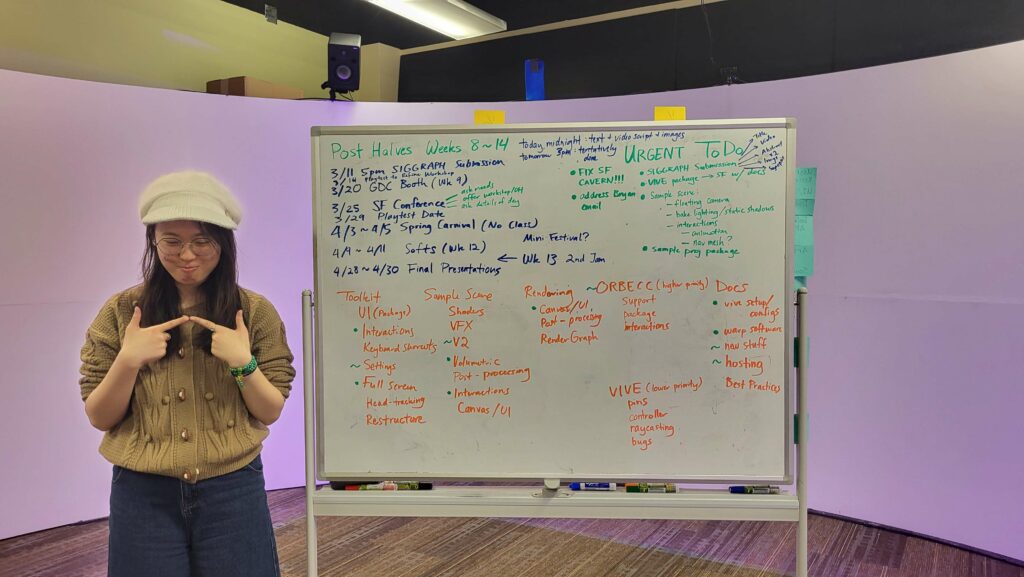 Post Halves Weeks 8~14
3/11 5pm SIGGRAPH Submission
3/20 GDC Booth (Wk 9)
3/25 SF Conference
ask needs
offer workshop/off
ask details of day
3/29 Playtest Date
4/3 ~ 4/5 Spring Carnival (No Class)
4/9 ~ 4/11 Softs (Wk 12)
Mini Festival?
4/28 ~ 4/30 Final Presentations
← Wk 13 2nd Jam
today midnight: text + video script + images
tomorrow 3pm: tentatively done
• FIX SF CAVERN!!!
• address Bryan email
URGENT ToDo
• SIGGRAPH Submission
Title
Video
Abstract
• VIVE package → SF w/ docs
• Sample Scene:
- floating camera
- bake lighting/static shadows
- interactions
- animation
- nav mesh?
• Sample proj package
Toolkit
UI (Package)
• Interactions
Keyboard Shortcuts
~ Settings
• Full Screen
Head-tracking
Restructure
Sample Scene
Shaders
VFX
~ V2
• Volumetric
Post-processing
• Interactions
Canvas/UI
Rendering
• Canvas/UI
Post-processing
RenderGraph
~ORBECC (higher priority)
support
package
interactions
VIVE (lower priority)
pins
controller
raycasting
bugs
Docs
• vive setup/
configs
• warp software
~ new stuff
~ hosting
Best Practices